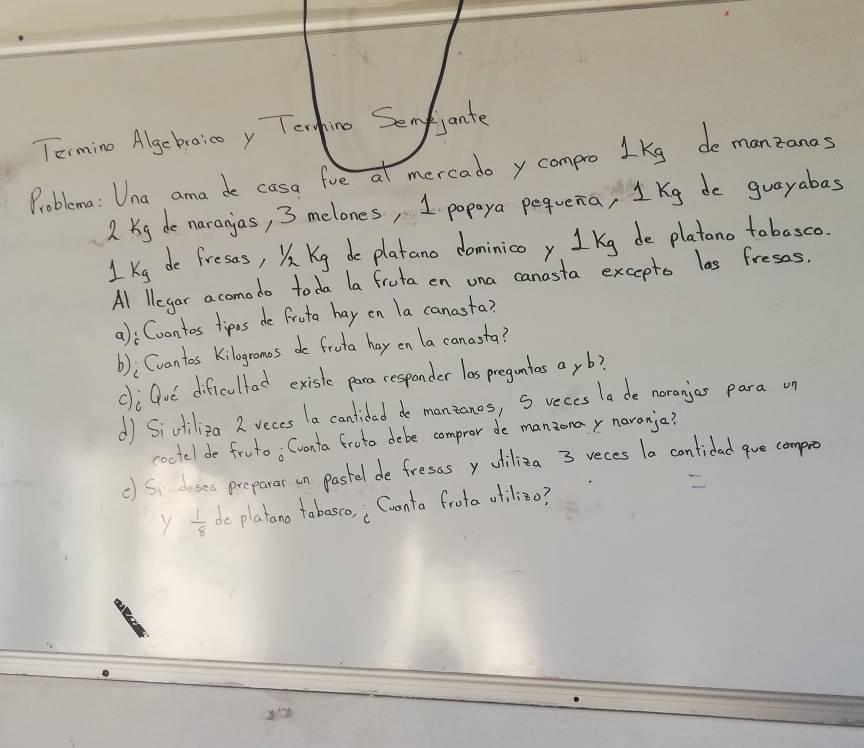 Termino Algebraico y Termino Semejante
Problema: Una ama de casa fue al mercado y compro 1Kg de manzanas
2 Kg de naranjas, 3 melones, 1 papaya pequeña, 1 Kg de guayabas
1 Kg de fresas, 1/2 Kg de platano dominico y 1 Kg de platano tabasco.
Al llegar acomodo toda la fruta en una canasta excepto las fresas.
a) ¿Cuantos tipos de fruta hay en la canasta?
b) ¿Cuantos Kilogramos de fruta hay en la canasta?
c) ¿Qué dificultad existe para responder las preguntas a y b?
d) Si utiliza 2 veces la cantidad de manzanas, 5 veces la de naranjas para un
coctel de fruta ¿Cuanta fruta debe comprar de manzana y naranja?
e) Si desea preparar un pastel de fresas y utiliza 3 veces la cantidad que compro
y 1/8 de platano tabasco, ¿Cuanta fruta utilizo?